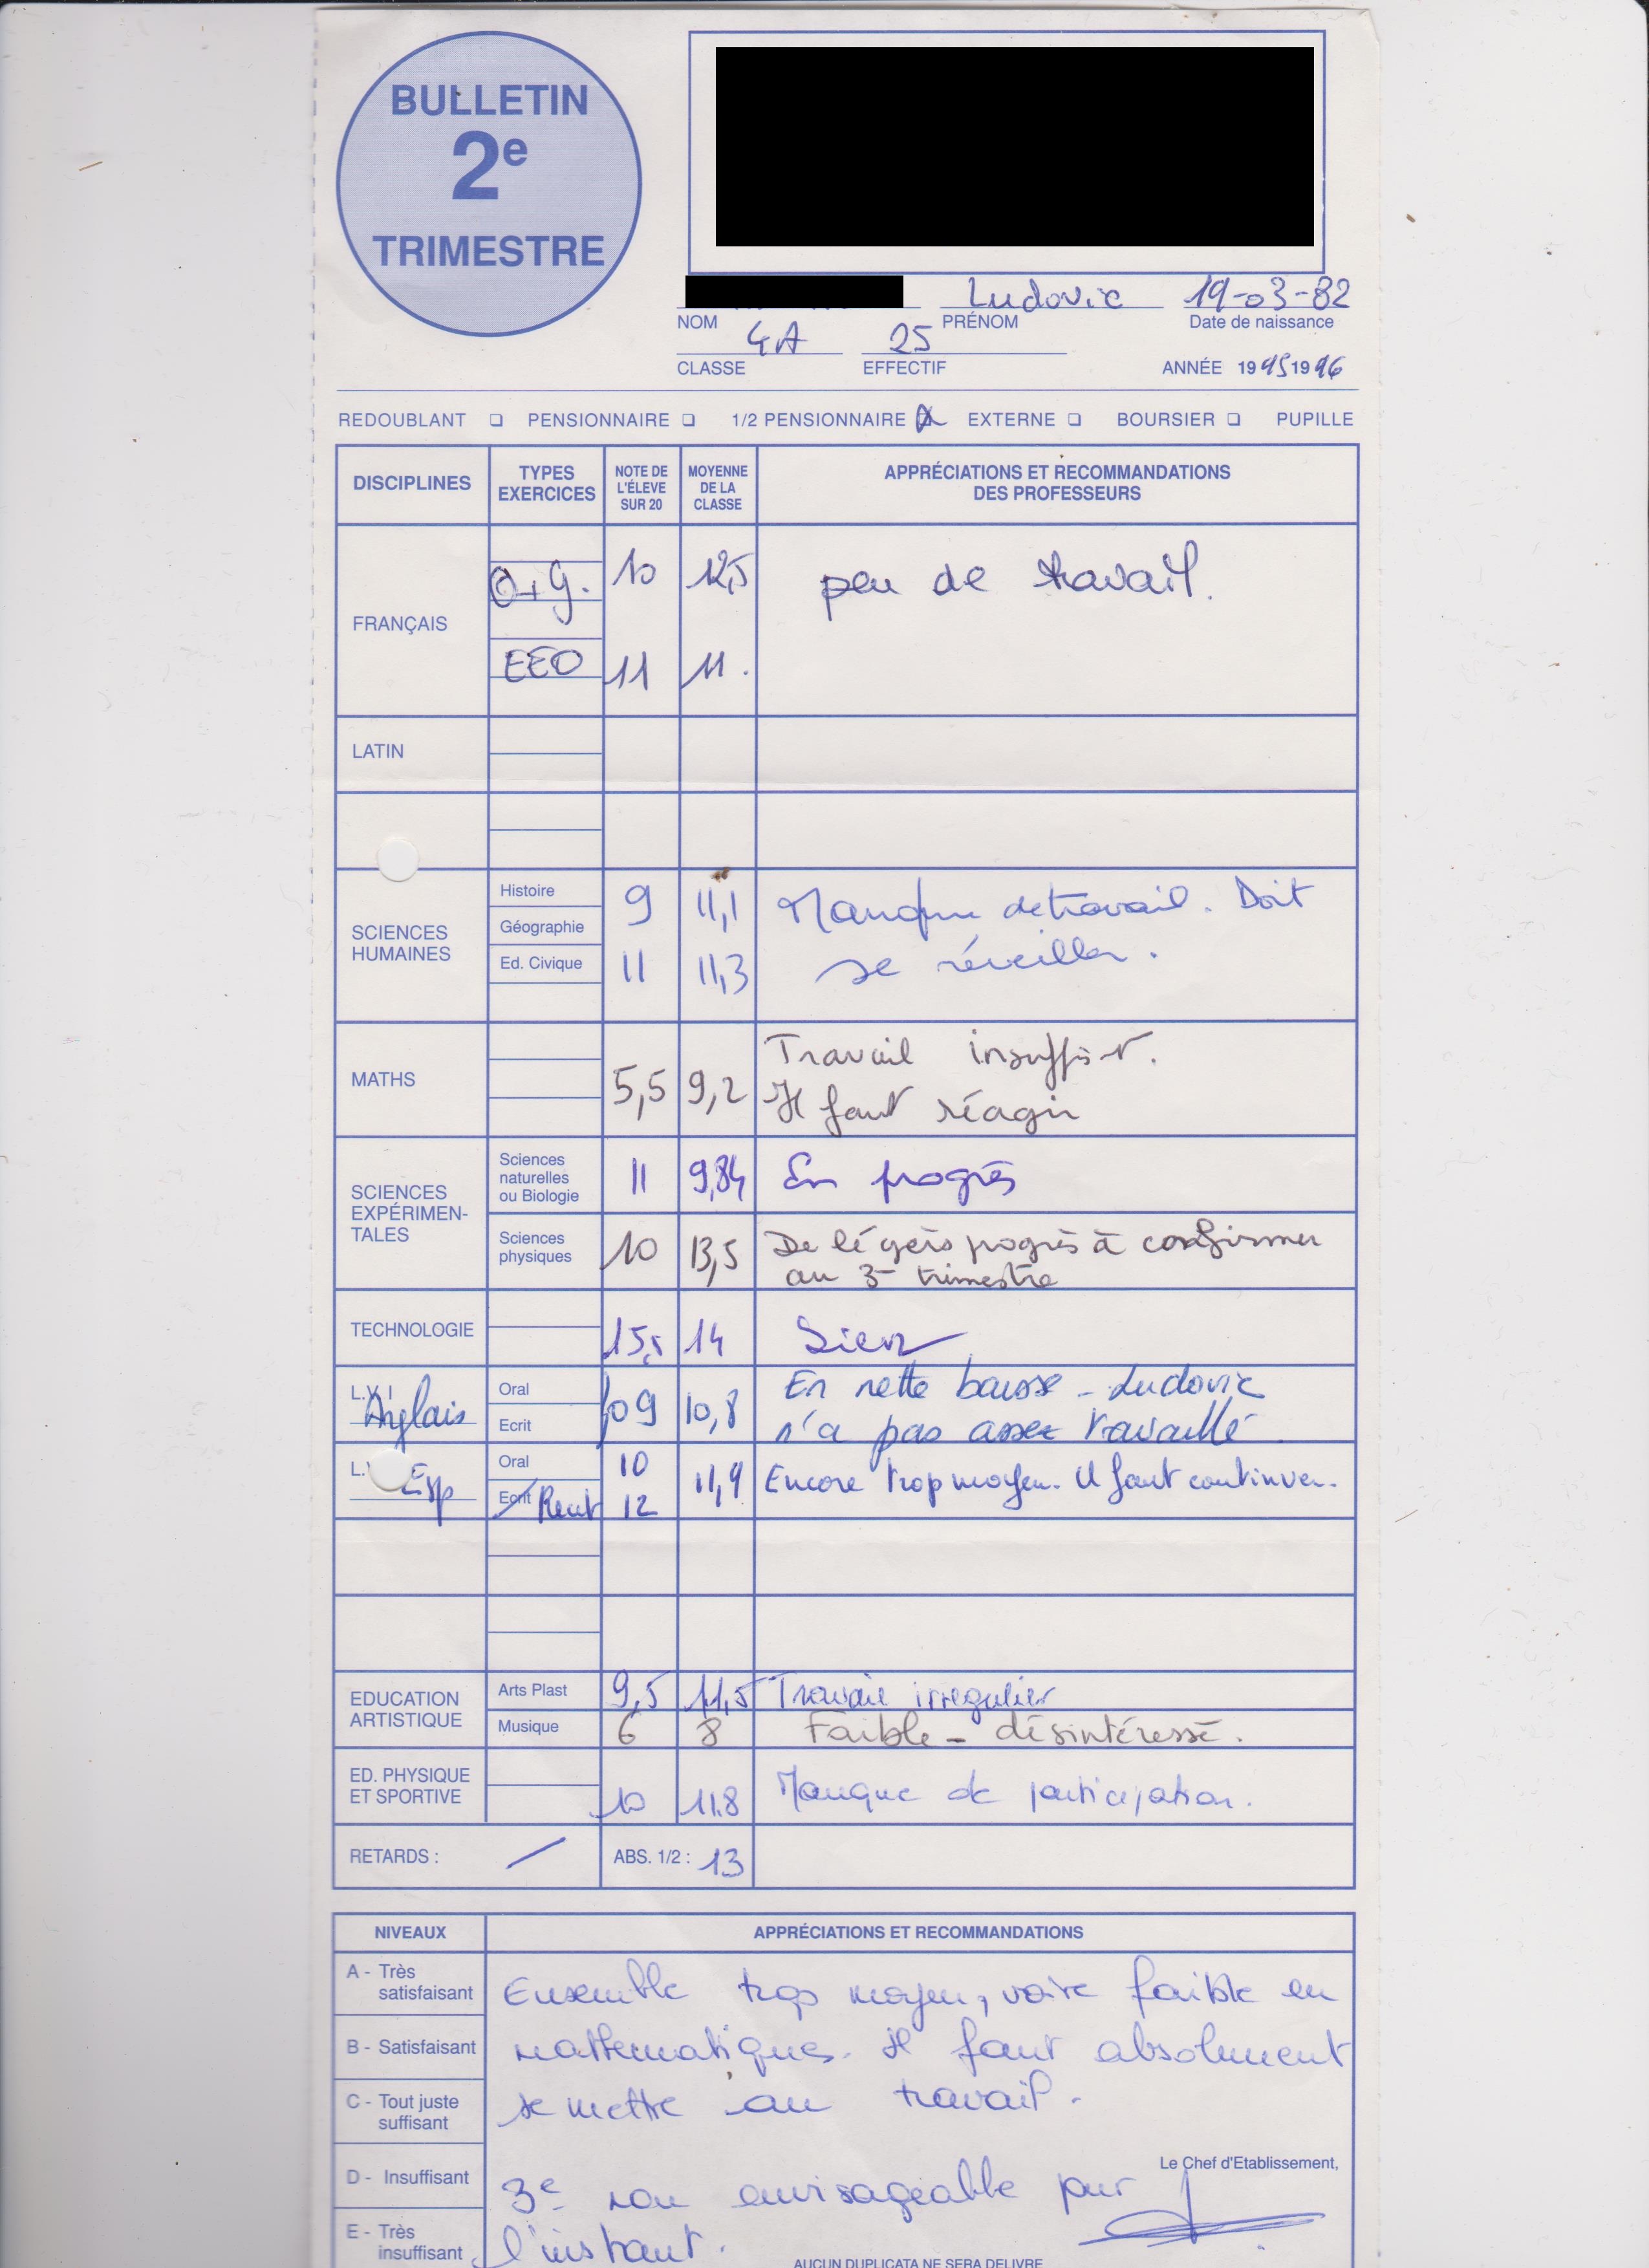 BULLETIN
2e
TRIMESTRE
Ludovic 19-03-82
NOM PRÉNOM Date de naissance
4A 25
CLASSE EFFECTIF ANNÉE 1995 1996
REDOUBLANT ❑ PENSIONNAIRE ❑ 1/2 PENSIONNAIRE ❑ EXTERNE ❑ BOURSIER ❑ PUPILLE
DISCIPLINES TYPES EXERCICES NOTE DE L'ÉLEVE SUR 20 MOYENNE DE LA CLASSE APPRÉCIATIONS ET RECOMMANDATIONS DES PROFESSEURS
FRANÇAIS
O+g. 10 12,5 peu de travail.
EEO 11 11.
LATIN
SCIENCES HUMAINES
Histoire 9 11,1 Manque de travail. Doit
Géographie
Ed. Civique 11 11,3 se réveiller.
MATHS 5,5 9,2 Travail insuffisant.
Il faut réagir
SCIENCES EXPÉRIMEN-TALES
Sciences naturelles ou Biologie 11 9,84 En progrès
Sciences physiques 10 13,5 De légers progrès à confirmer
au 3e trimestre
TECHNOLOGIE 15,5 14 Bien
L.V.I Anglais Oral 09 10,8 En nette baisse - Ludovic
Ecrit n'a pas assez travaillé
L.V Esp Oral 10 11,9 Encore trop moyen. Il faut continuer.
Ecrit 12
EDUCATION ARTISTIQUE
Arts Plast 9,5 11,5 Travail irregulier
Musique 6 8 Faible - désintéressé.
ED. PHYSIQUE ET SPORTIVE 10 11.8 Manque de participation.
RETARDS : / ABS. 1/2 : 13
NIVEAUX APPRÉCIATIONS ET RECOMMANDATIONS
A - Très satisfaisant
B - Satisfaisant
C - Tout juste suffisant
D - Insuffisant
E - Très insuffisant
Ensemble trop moyen, voire faible en
mathematiques. Il faut absolument
se mettre au travail.
Le Chef d'Etablissement,
3e non envisageable pour
l'instant.
AUCUN DUPLICATA NE SERA DELIVRE